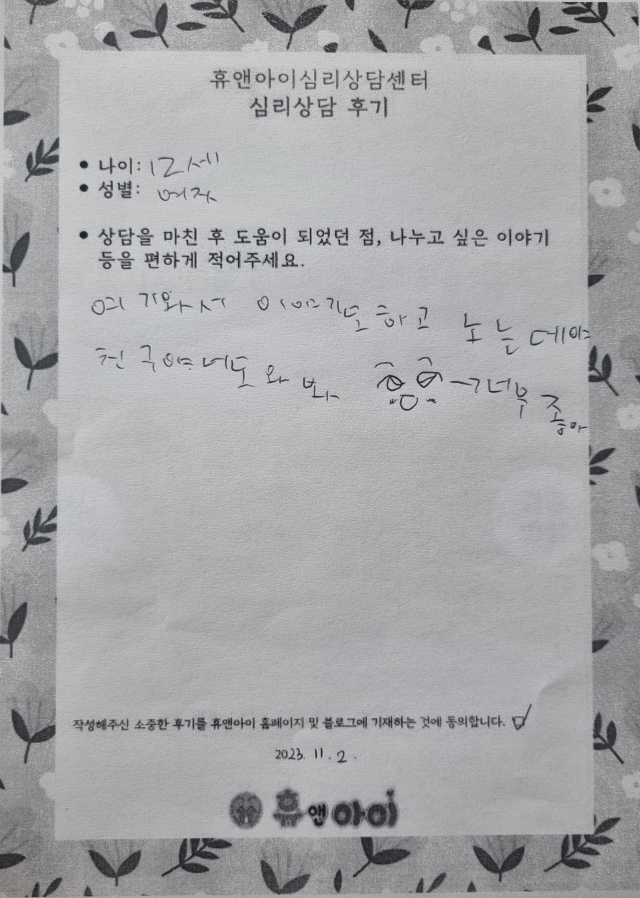 휴앤아이심리상담센터
심리상담 후기
• 나이: 12세
• 성별: 여자
• 상담을 마친 후 도움이 되었던 점, 나누고 싶은 이야기
등을 편하게 적어주세요.
여기와서 이야기도 하고 노는데야
천국야 너도 와봐 너무 좋아
작성해주신 소중한 후기를 휴앤아이 홈페이지 및 블로그에 기재하는 것에 동의합니다. ☑
2023. 11. 2.
휴앤아이